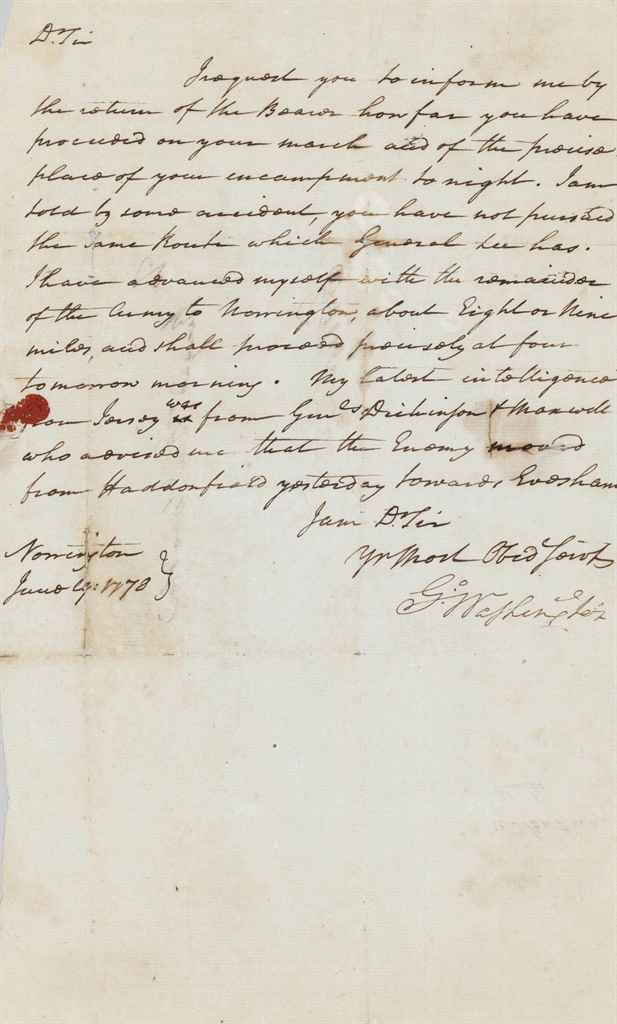 Dr Sir
I request you to inform me by
the return of the Bearer how far you have
proceeded on your march and of the precise
place of your encampment to night. I am
told by some accident, you have not pursued
the same Route which General Lee has.
I have advanced myself with the remainder
of the Army to Norrington, about Eight or Nine
miles, and shall proceed precisely at four
tomorrow morning. My latest intelligence
Jersey was from Genls Dickinson & Maxwell
who advised me that the Enemy moved
from Haddonfield yesterday towards Evesham
I am Dr Sir
Yr Most Obed Servt
Go: Washington
Norrington
June 19: 1778